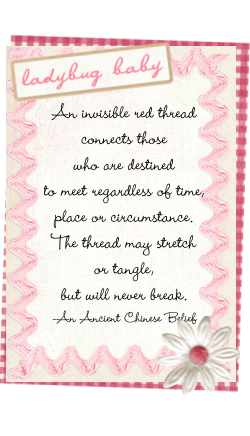 ladybug baby
An invisible red thread
connects those
who are destined
to meet regardless of time,
place or circumstance.
The thread may stretch
or tangle,
but will never break.
-An Ancient Chinese Belief